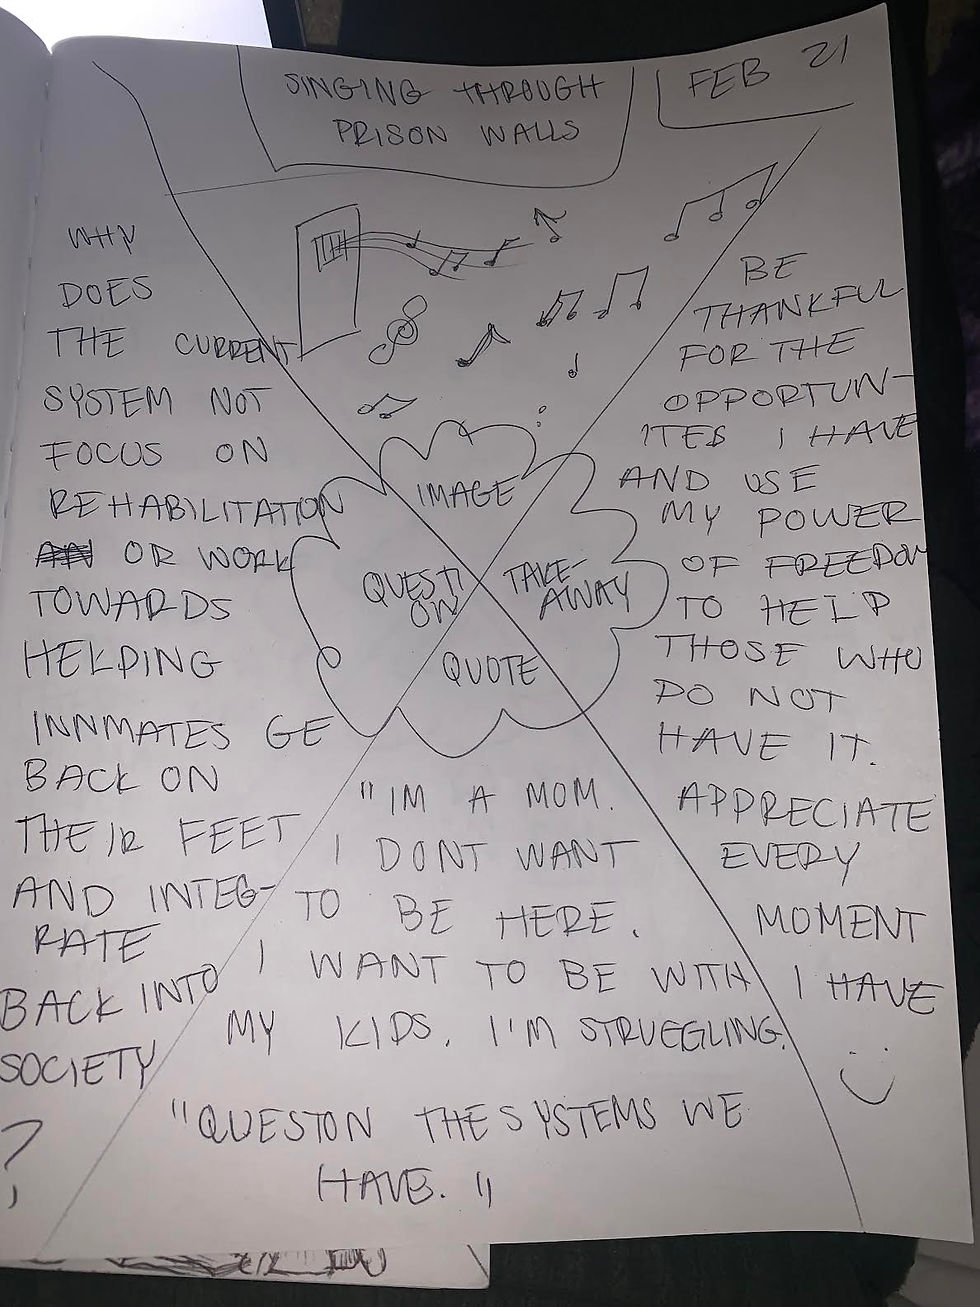 SINGING THROUGH
PRISON WALLS
FEB 21
WHY
DOES
THE CURRENT
SYSTEM NOT
FOCUS ON
REHABILITATION
OR WORK
TOWARDS
HELPING
INNMATES GE
BACK ON
THEIR FEET
AND INTEG-
RATE
BACK INTO
SOCIETY
?
IMAGE
QUESTI
ON
TAKE-
AWAY
QUOTE
BE
THANKFUL
FOR THE
OPPORTUN-
ITES I HAVE
AND USE
MY POWER
OF FREEDOM
TO HELP
THOSE WHO
DO NOT
HAVE IT.
APPRECIATE
EVERY
MOMENT
I HAVE
"IM A MOM.
I DONT WANT
TO BE HERE.
I WANT TO BE WITH
MY KIDS. I'M STRUEGLING.
"QUESTON THE SYSTEMS WE
HAVE."